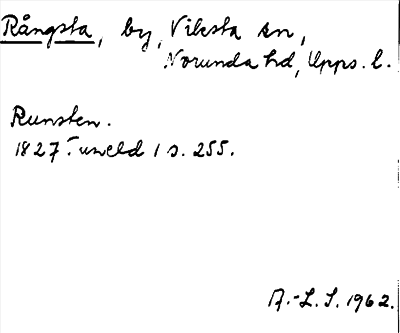 Rångsta, by, Viksta sn,
Norunda hd, Upps. l.
Runsten.
1827 Tuneld 1 s. 255.
A.-L. S. 1962.